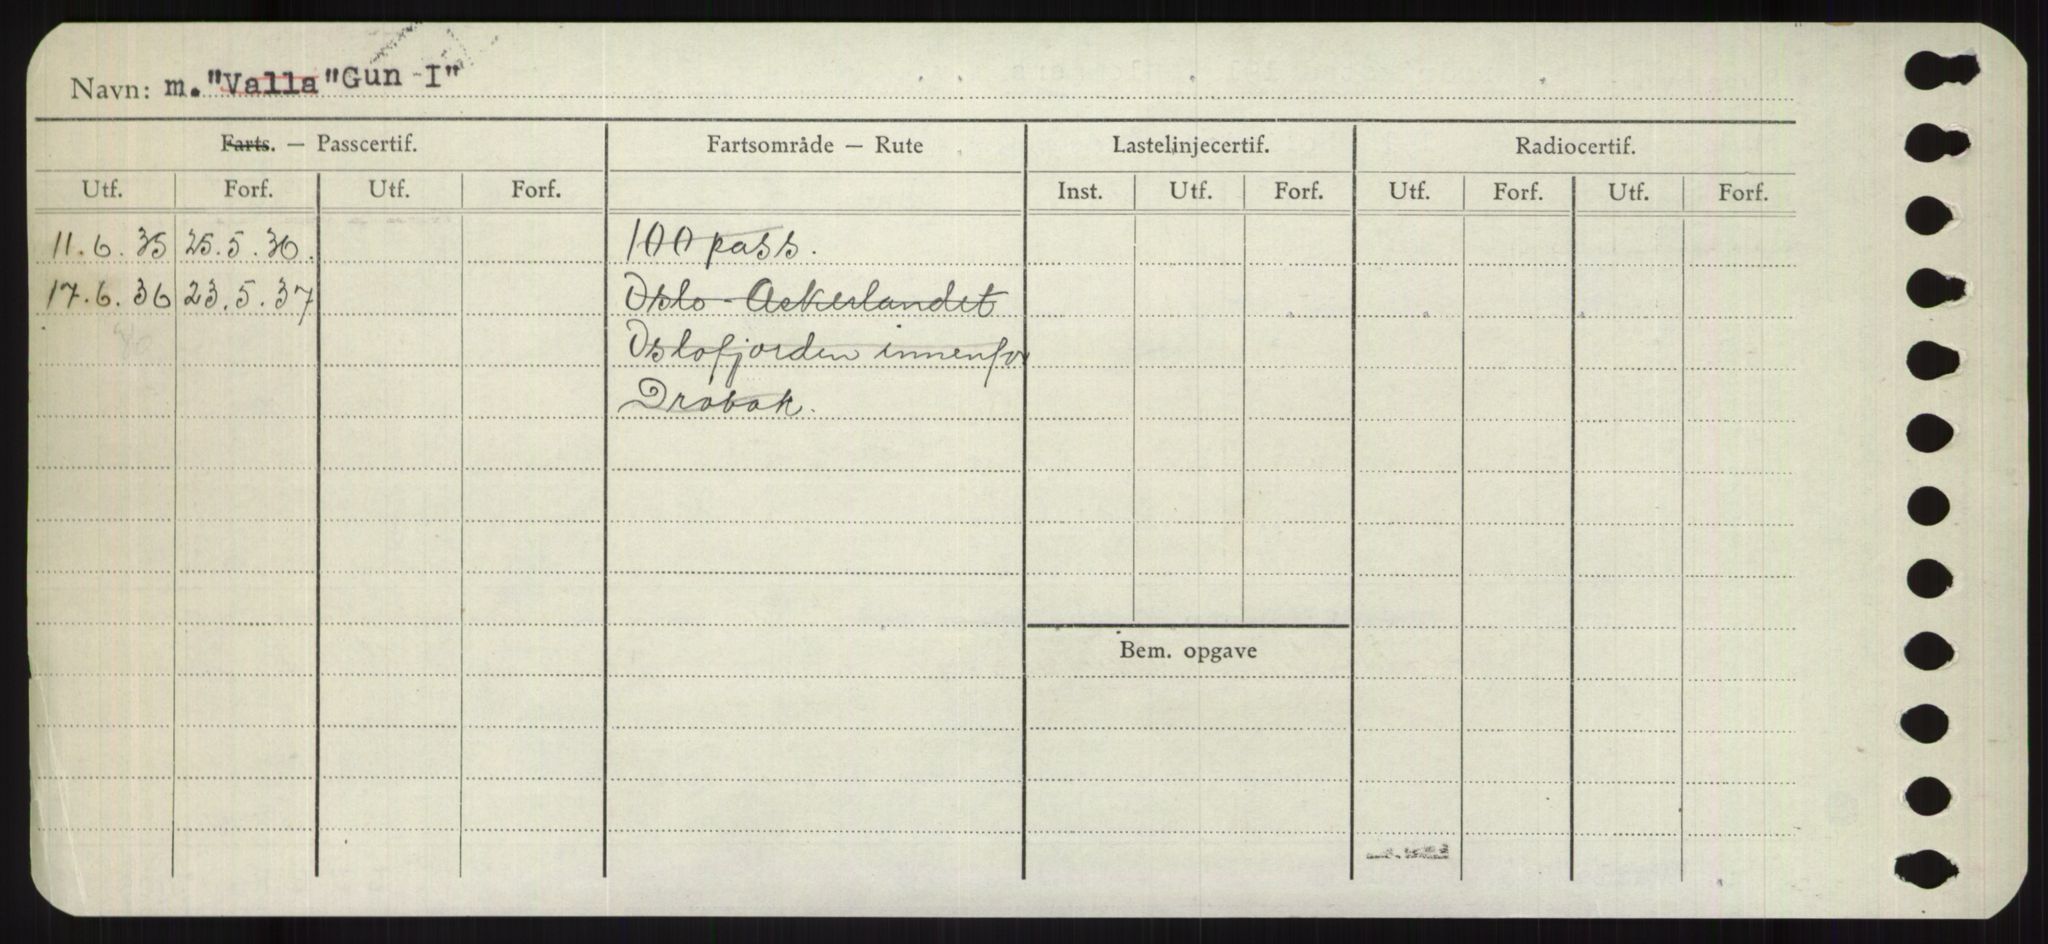 Navn: m. "Valla" "Gun I"
Farts. — Passcertif. Fartsområde — Rute Lastelinjecertif. Radiocertif.
Utf. Forf. Utf. Forf. Inst. Utf. Forf. Utf. Forf. Utf. Forf.
11.6.35 25.5.36. 100 pass.
17.6.36 23.5.37 Oslo - Ackerlandet
Oslofjorden innenfor
Drøbak.
Bem. opgave